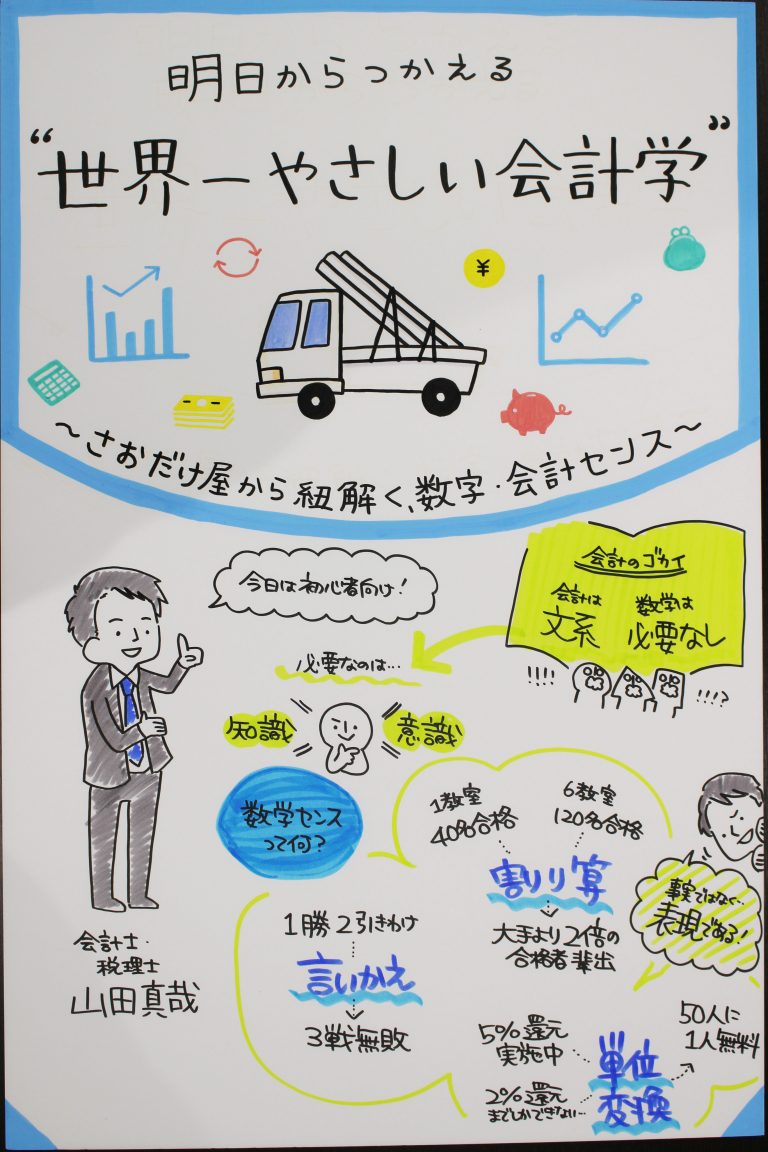 明日からつかえる
“世界一やさしい会計学”
¥
～さおだけ屋から紐解く、数字・会計センス～
今日は初心者向け！
会計のゴカイ
会計は
文系
数学は
必要なし
!!!!
!!!?
必要なのは…
知識
意識
数学センス
って何?
1教室
40%合格
6教室
120%合格
割り算
大手より2倍の
合格者輩出
事実ではなく…
表現である!
1勝2引きわけ
言いかえ
3戦無敗
会計士・
税理士
山田真哉
5%還元
実施中
2%還元
までしかできない…
単位
変換
50人に
1人無料